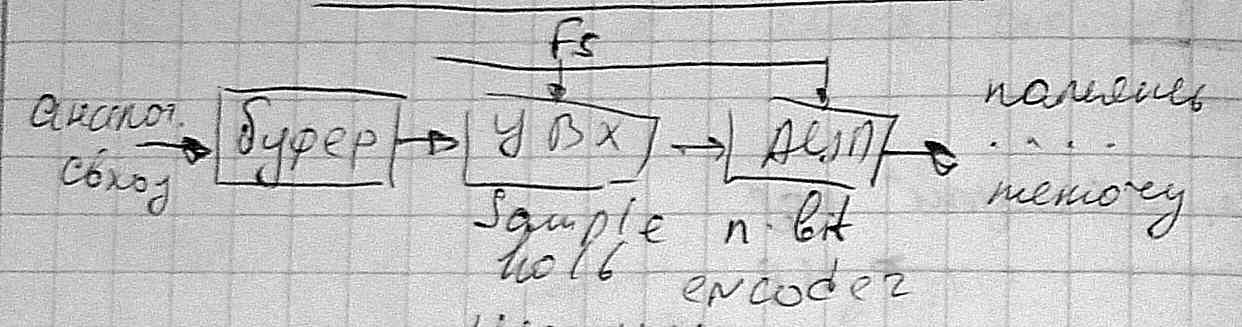 Fs
аналог.
свход
буфер
УВХ
АЦП
память
....
Sample
hold
n-bit
encoder